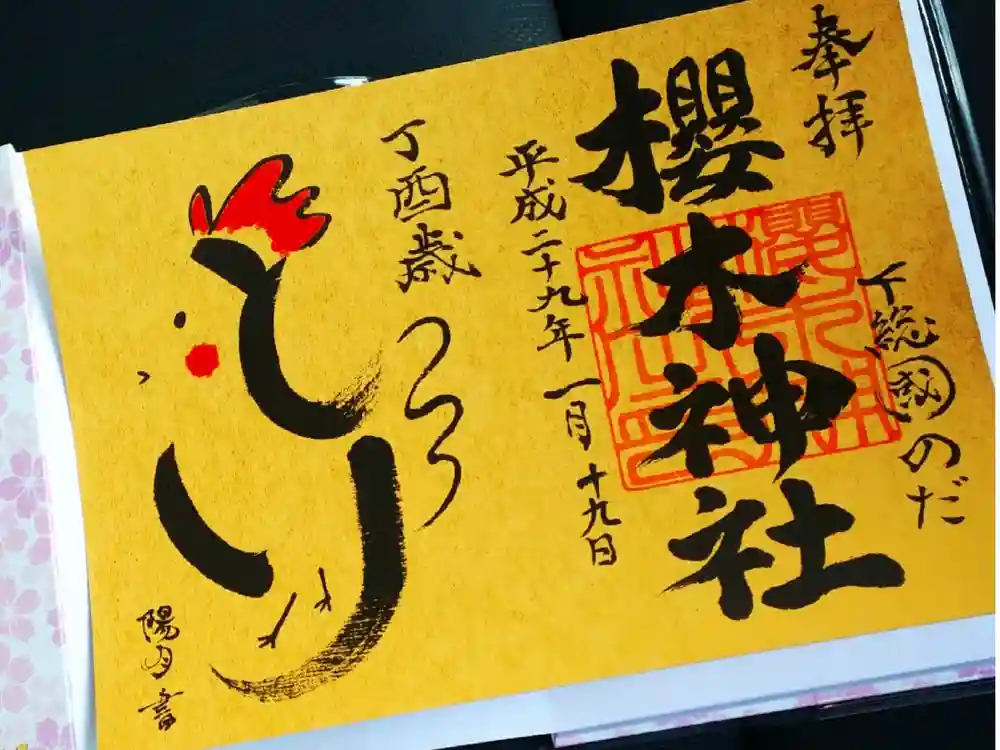 奉拝
下総國のだ
櫻木神社
櫻木神社
平成二十九年一月十九日
丁酉歳
とり
陽月書